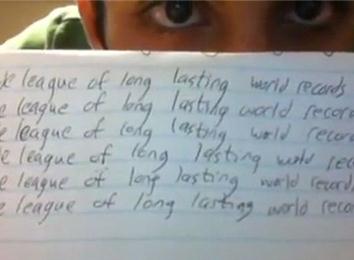 league of long lasting world records
league of long lasting world
league of long lasting world
league of long lasting world
league of long lasting world
league of long lasting world